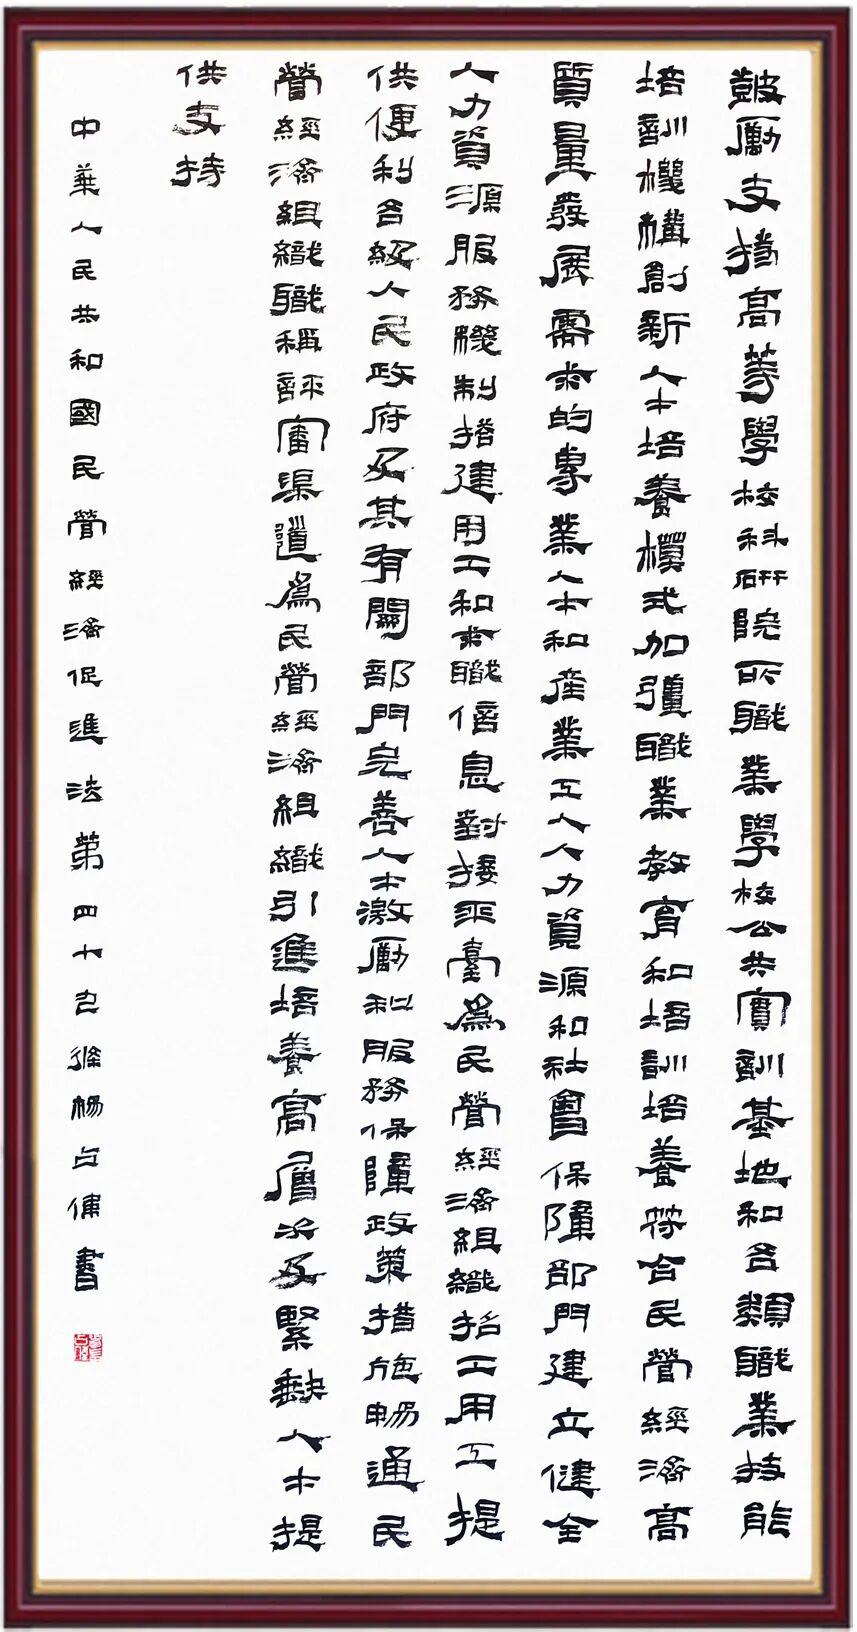 鼓勵支持高等學校科研院所職業學校公共實訓基地和各類職業技能
培訓機構創新人才培養模式加强職業教育和培訓培養符合民營經濟高
質量發展需求的專業人才和産業工人人力資源和社會保障部門建立健全
人力資源服務機制搭建用工和求職信息對接平臺爲民營經濟組織招工用工提
供便利各級人民政府及其有關部門完善人才激勵和服務保障政策措施暢通民
營經濟組織職稱評審渠道爲民營經濟組織引進培養高層次及緊缺人才提
供支持
中華人民共和國民營經濟促進法第四十九條楊占書